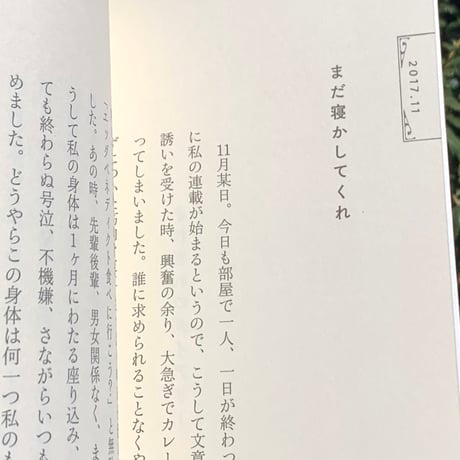 2017.11
まだ寝かしてくれ
11月某日。今日も部屋で一人、一日が終わっ
に私の連載が始まるというので、こうして文章
誘いを受けた時、興奮の余り、大急ぎでカレー
ってしまいました。誰に求められることなくや
エッグベネディクト食べに行こう?」と無
した。あの時、先輩後輩、男女関係なく、ま
うして私の身体は1ヶ月にわたる座り込み、
ても終わらぬ号泣、不機嫌、さながらいつも
めました。どうやらこの身体は何一つ私のも